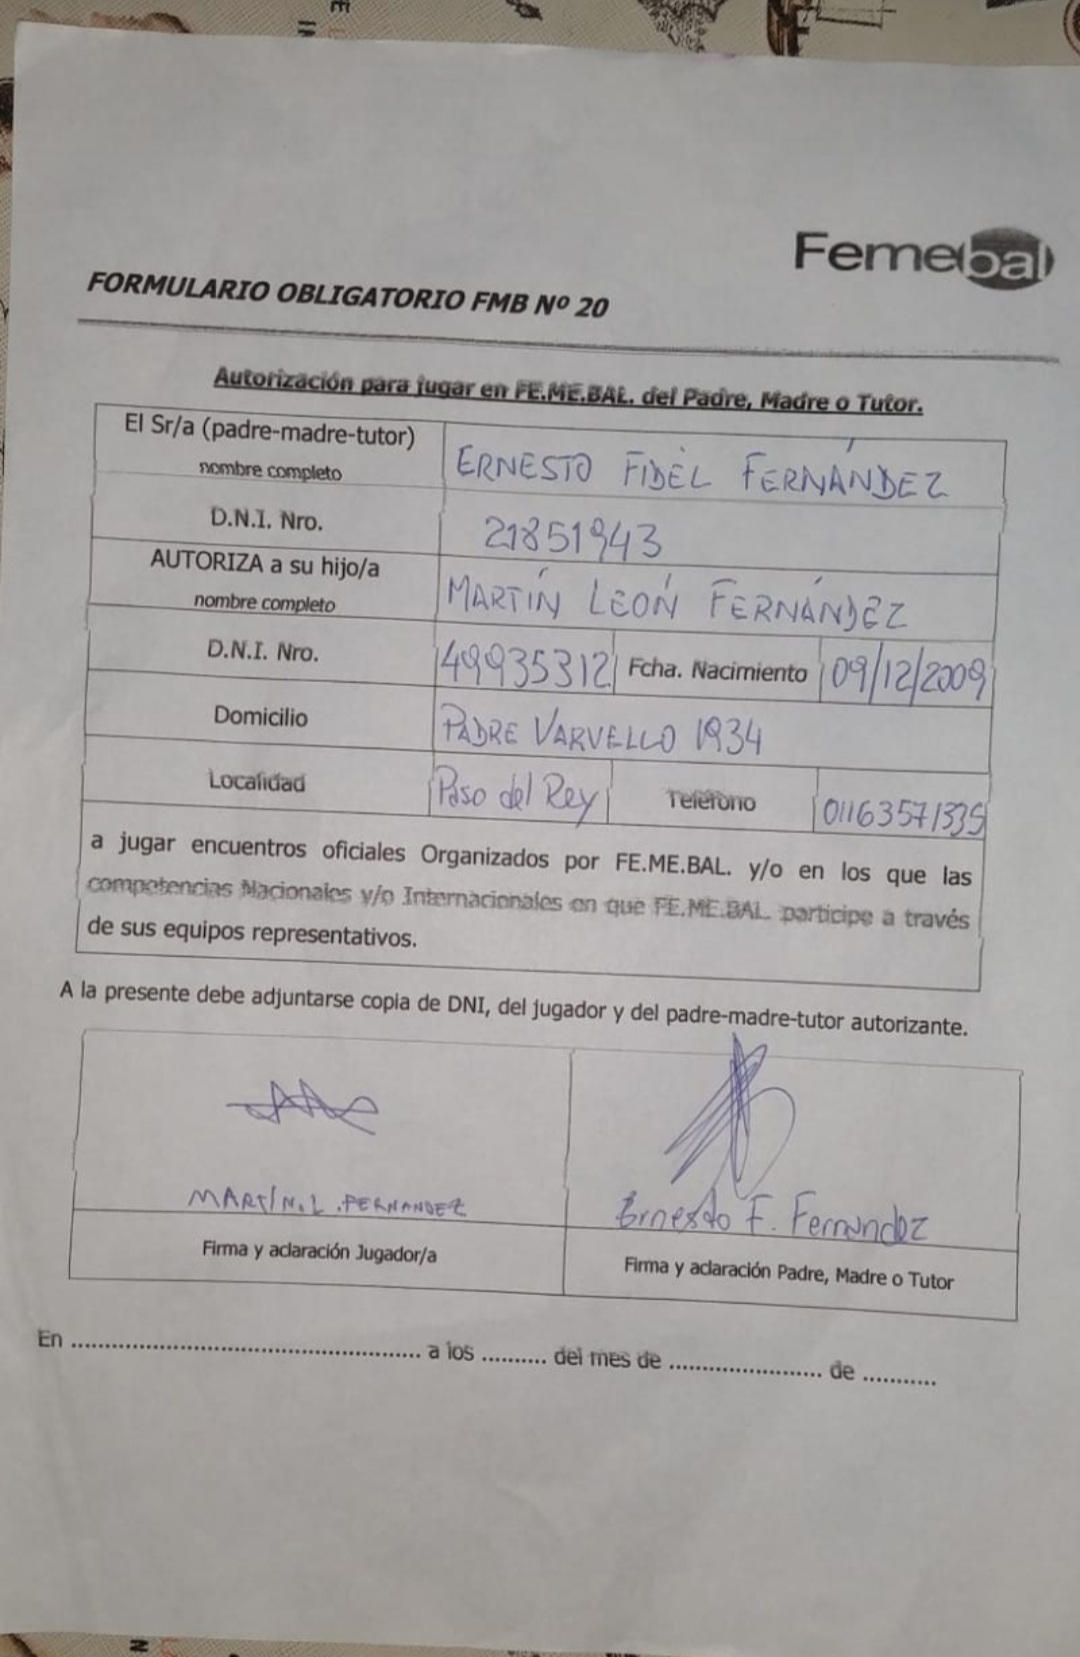 Femebal
FORMULARIO OBLIGATORIO FMB Nº 20
Autorización para jugar en FE.ME.BAL. del Padre, Madre o Tutor.
El Sr/a (padre-madre-tutor)
nombre completo
ERNESTO FIDEL FERNÁNDEZ
D.N.I. Nro.
21851943
AUTORIZA a su hijo/a
nombre completo
MARTÍN LEÓN FERNÁNDEZ
D.N.I. Nro. 49935312 Fcha. Nacimiento 09/12/2009
Domicilio PADRE VARVELLO 1934
Localidad Paso del Rey Teléfono 01163571335
a jugar encuentros oficiales Organizados por FE.ME.BAL. y/o en los que las
competencias Nacionales y/o Internacionales en que FE.ME.BAL. participe a través
de sus equipos representativos.
A la presente debe adjuntarse copia de DNI, del jugador y del padre-madre-tutor autorizante.
MARTÍN.L.FERNANDEZ
Ernesto F. Fernandez
Firma y aclaración Jugador/a
Firma y aclaración Padre, Madre o Tutor
En .................................................. a los .......... del mes de ...................... de ...........